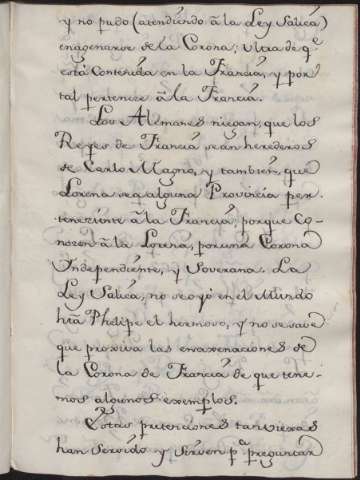 y no pudo (atendiendo â la Ley Salica)
enagenarse de la Corona; Ultra de q.^e
está Contenida en la Francia, y por
tal pertenece â la Francia.
Los Alemanes niegan, que los
Reyes de Francia sean herederos
de Carlo Magno, y tambien, que
Lorena sea alguna Provincia per-
teneziente â la Francia; porque Co-
nozen â la Lorena, por una Corona
Independiente, y Soverana. La
Ley Salica, no se oyó en el Mundo
hta Phelipe el hermoso, y no se save
que proxiva las enaxenaciones de
la Corona de Francia de que tene-
mos algunos exemplos.
Estas pretenciones tan viexas
han servido y sirven p.^a preguntar